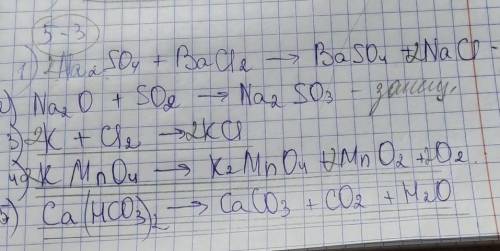 5-3
1) Na2SO4 + BaCl2 → BaSO4 + 2NaCl -
2) Na2O + SO2 → Na2SO3 -
3) 2K + Cl2 → 2KCl
4) 2KMnO4 → K2MnO4 + MnO2 + O2
5) Ca(HCO3)2 → CaCO3 + CO2 + H2O